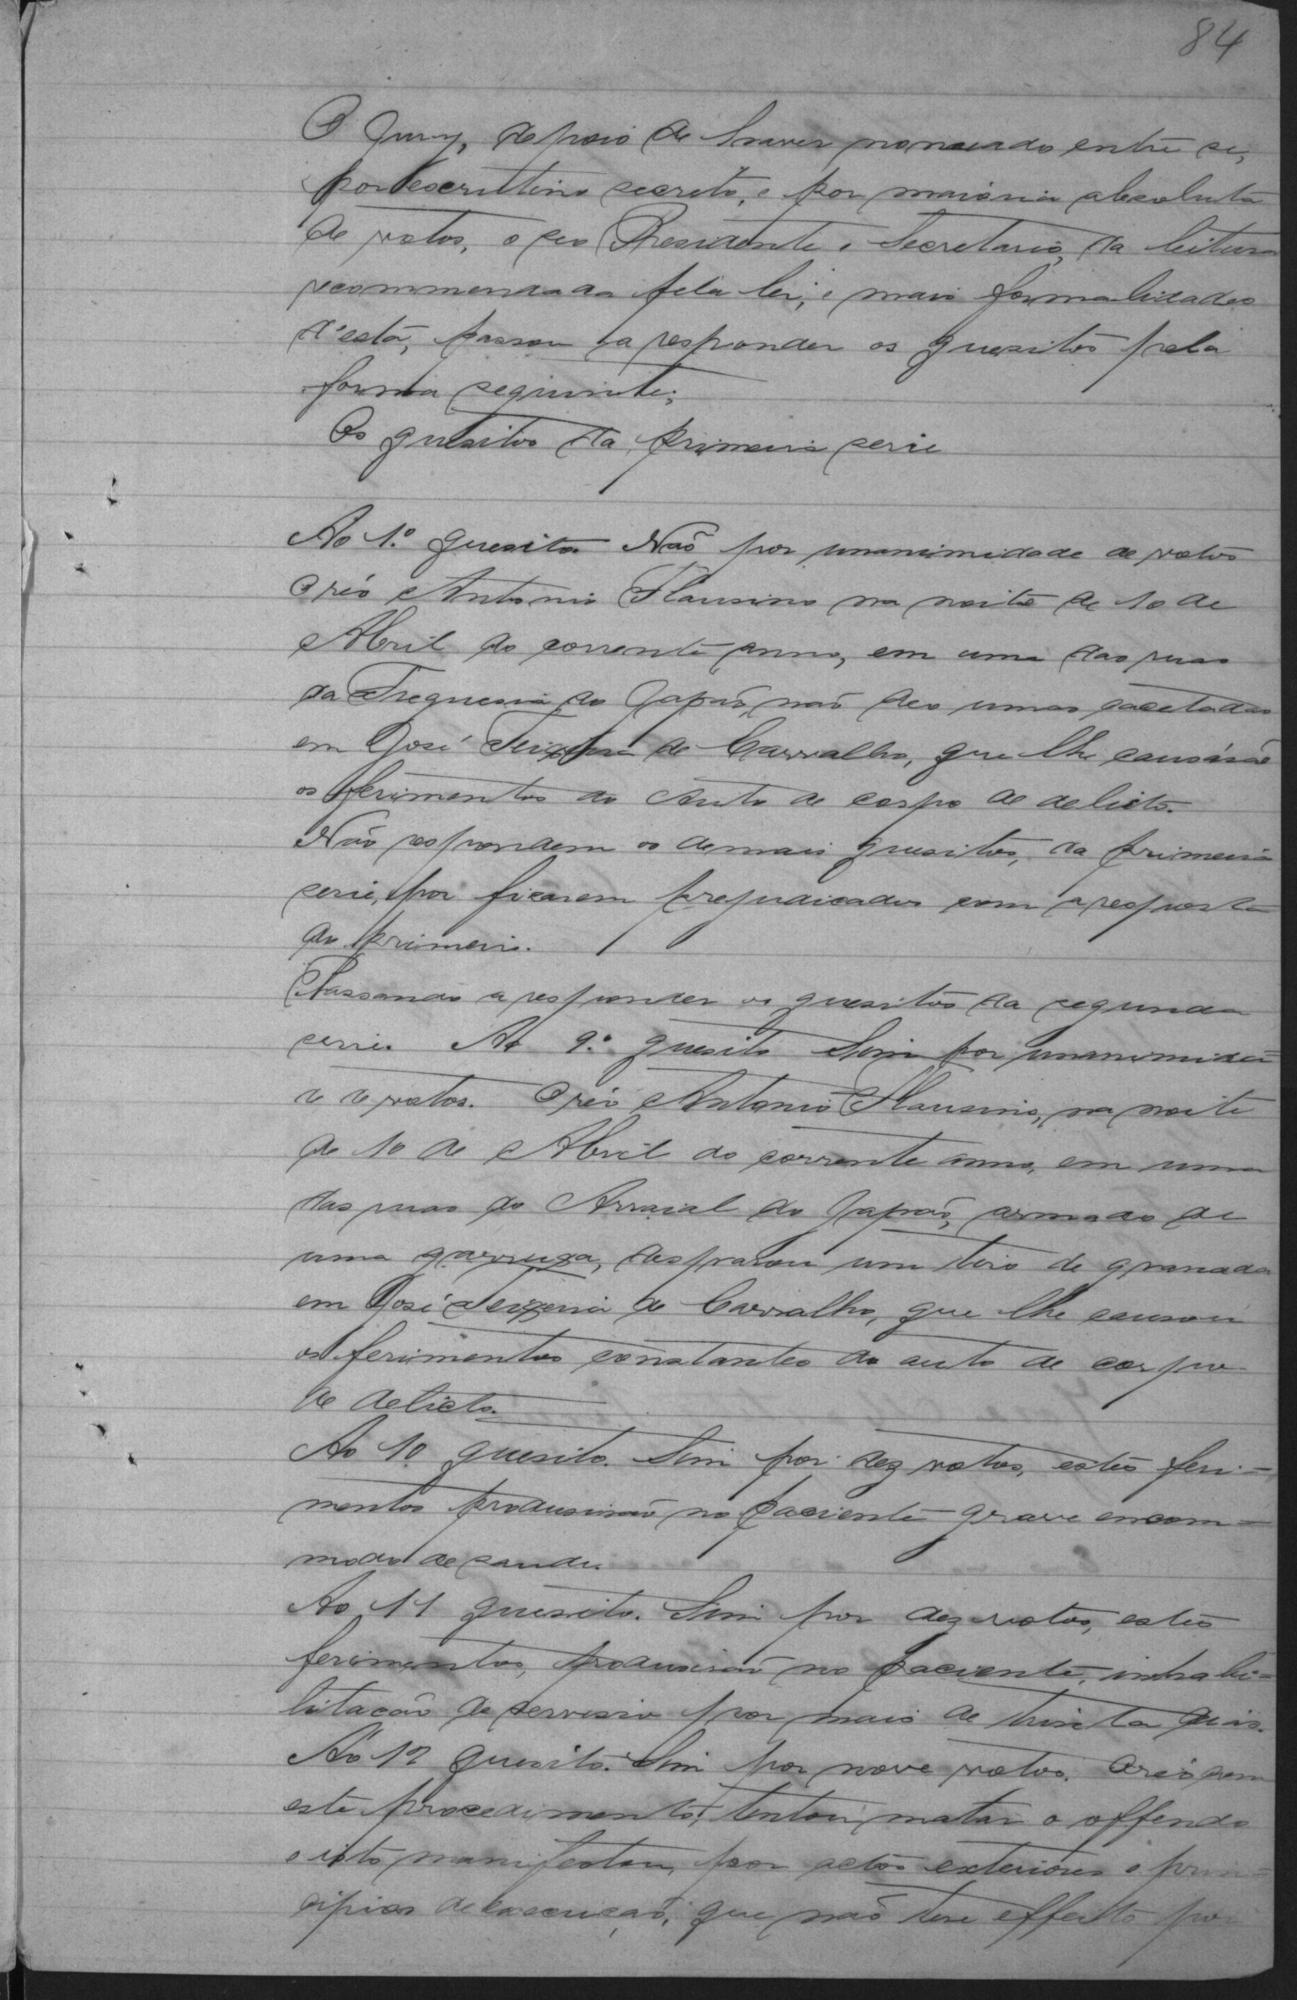 84
O Jury, depois de haver nomeado entre si,
por escrutino secreto, e por maioria absoluta
de votos, o seo Presidente e Secretario, da leitura
recommendada pela lei, e mais formalidades
d'esta, passou a responder os quesitos pela
forma seguinte;
Os quesitos da primeira serie
Ao 1.º quesito Não por unanimidade de votos
O réo Antonio Flausino na noite de 10 de
Abril do corrente anno, em uma das ruas
da Freguesia do Japão, não deo umas cacetadas
em José Teixeira de Carvalho, que lhe causárão
os ferimentos do auto de corpo de delicto.
Não respondem os demais quesitos, da primeira
serie, por ficarem prejudicados com a resposta
do primeiro.
Passando a responder os quesitos da segunda
serie. Ao 9.º quesito Sim por unanimida=
de de votos. O réo Antonio Flausino, na noite
de 10 de Abril do corrente anno, em uma
das ruas do Arraial do Japão, armado de
uma garruxa, desparou um tiro de granada
em José Teixeira de Carvalho, que lhe causou
os ferimentos constantes do auto de corpo
de delicto.
Ao 10 quesito. Sim por dez votos, estes feri=
mentos produsirão no paciente grave encom=
modo de saude.
Ao 11 quesito. Sim por dez votos, estes
ferimentos, produsirão no paciente, inhabi=
litação de servisio por mais de trinta dias.
Ao 12 quesito. Sim por nove votos. O réo com
este procedimento, tentou matar o offendo
e isto manifestou, por actos exteriores e prin=
cipios de execução, que não teve effeito por